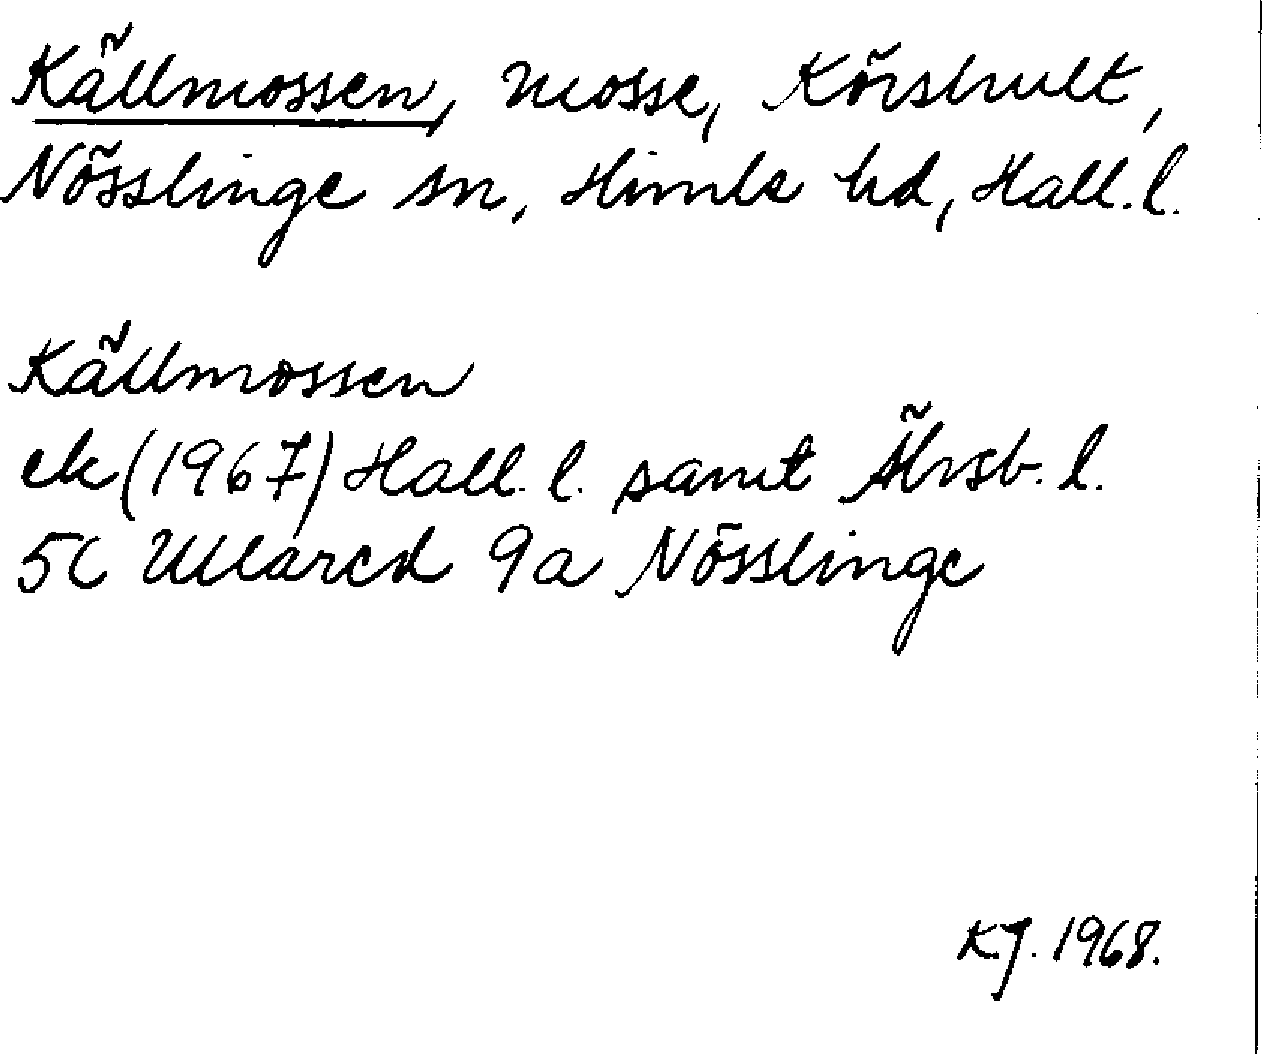 Källmossen, mosse, Körshult,
Nösslinge sn, Himle hd, Hall. l.
Källmossen
ek (1967) Hall. l. samt Älvsb. l.
5C Ullared 9a Nösslinge
KJ. 1968.